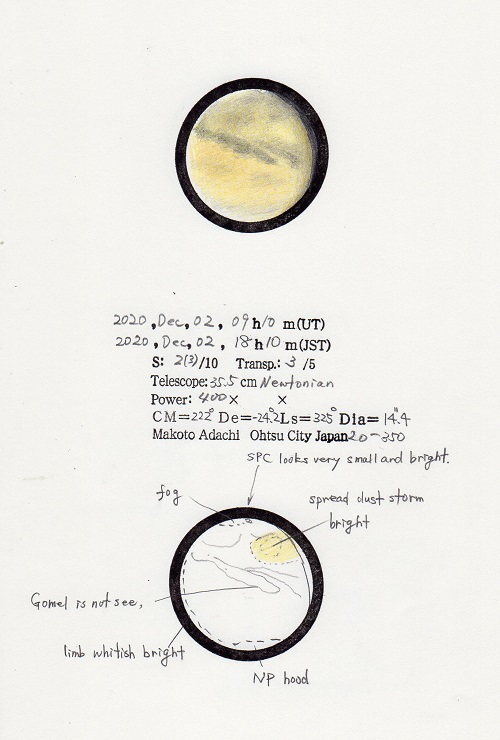 2020, Dec, 02, 09 h 10 m(UT)
2020, Dec, 02, 18 h 10 m(JST)
S: 2(3)/10 Transp.: 3 /5
Telescope: 35.5 cm Newtonian
Power: 400× ×
CM=222° De=-24.2° Ls=325° Dia= 14.4"
Makoto Adachi Ohtsu City Japan 20-350
SPC looks very small and bright.
fog
spread dust storm
bright
Gomel is not see,
limb whitish bright
NP hood